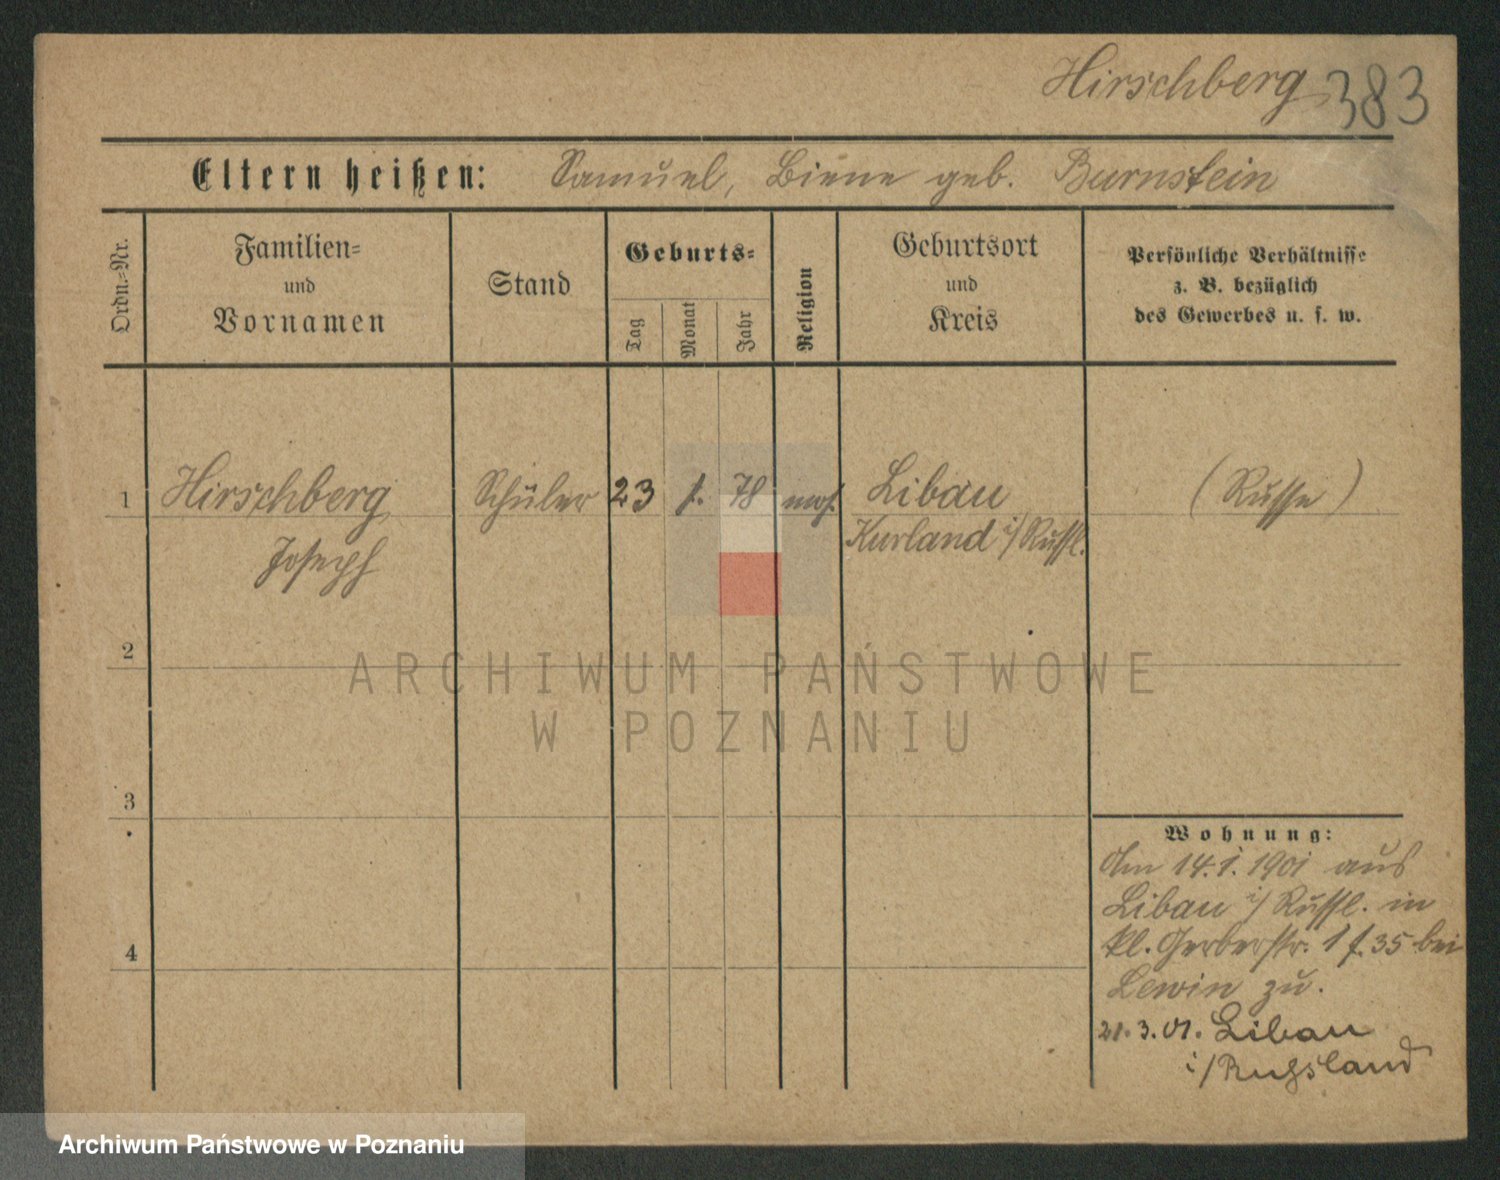 Hirschberg 383
Eltern heißen: Samuel, Biene geb. Burnstein
Ordn.=Nr.
Familien=
und
Vornamen
Stand
Geburts=
Tag
Monat
Jahr
Religion
Geburtsort
und
Kreis
Persönliche Verhältnisse
z. B. bezüglich
des Gewerbes u. s. w.
1 Hirschberg Schüler 23 1. 78 mos. Libau (Russe)
Joseph Kurland i/Russl.
2
3
4
Wohnung:
Am 14.1.1901 aus
Libau i/Russl. in
kl. Gerberstr. 1 35 bei
Lewin zu.
21.3.01. Libau
i/Russland
ARCHIWUM PAŃSTWOWE
W POZNANIU
Archiwum Państwowe w Poznaniu